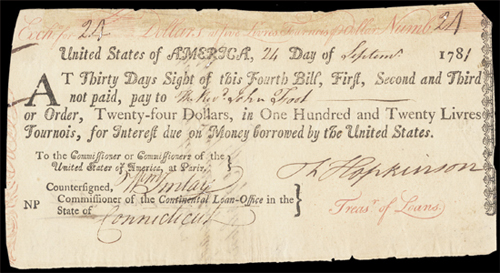 Exch.ᵉ for 24 Dollars at five Livres Tournois p Dollar Numb. 21
United States of AMERICA, 24 Day of Septemʳ 1781
AT Thirty Days Sight of this Fourth Bill, First, Second and Third
not paid, pay to The Revᵈ John Foot
or Order, Twenty-four Dollars, in One Hundred and Twenty Livres
Tournois, for Interest due on Money borrowed by the United States.
To the Commissioner or Commissioners of the
United States of America, at Paris.
Countersigned, Wm Imlay
Commissioner of the Continental Loan-Office in the
NP State of Connecticut
Hopkinson
Treasʳ of Loans.